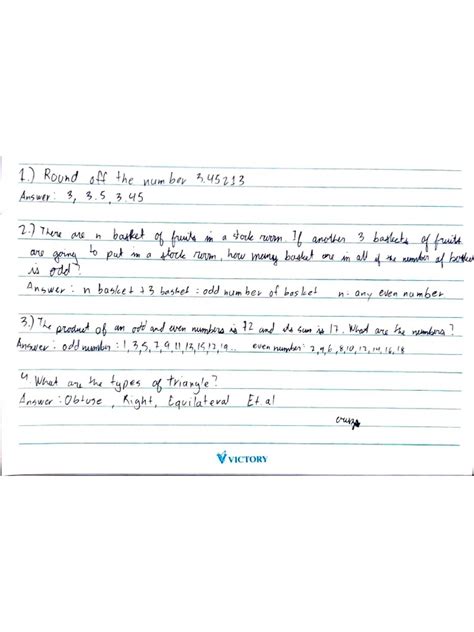 1.) Round off the number 3.45213
Answer: 3, 3.5, 3.45
2.) There are n basket of fruits in a stock room. If another 3 baskets of fruits
are going to put in a stock room, how many basket are in all if the number of basket
is odd?
Answer: n basket + 3 basket: odd number of basket n: any even number
3.) The product of an odd and even numbers is 72 and its sum is 17. What are the numbers?
Answer: odd number: 1, 3, 5, 7, 9, 11, 13, 15, 17, 19... even number: 2, 4, 6, 8, 10, 12, 14, 16, 18
4. What are the types of triangle?
Answer: Obtuse, Right, Equilateral Et.al
VICTORY